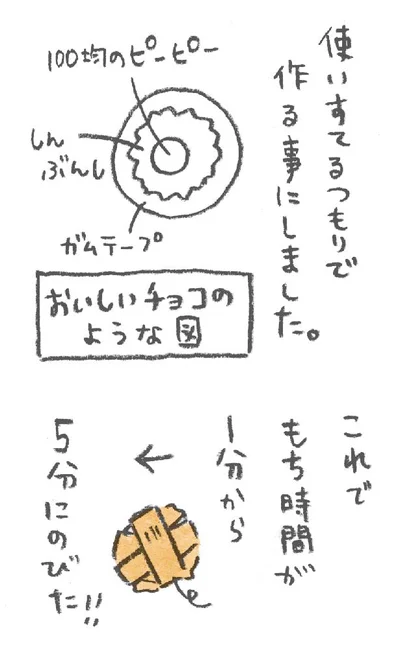 使いすてるつもりで
作る事にしました。
100均のピーピー
しん
ぶんし
ガムテープ
おいしいチョコの
ような図
これで
もち時間が
1分から
←
5分にのびた!!